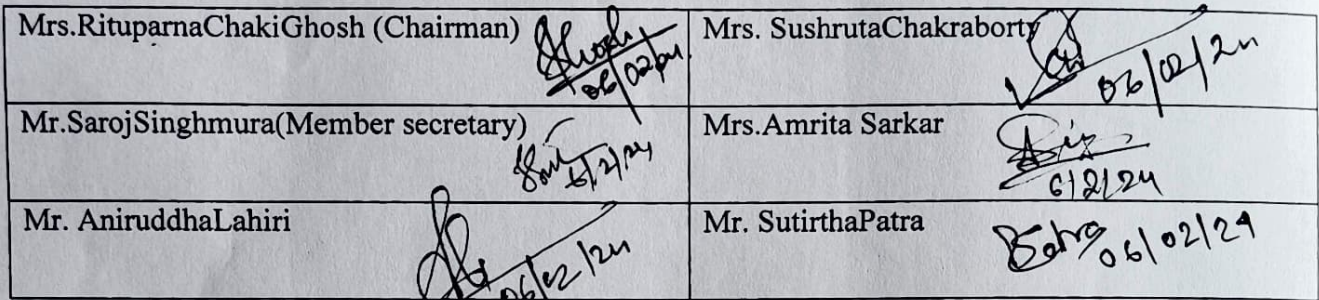 Mrs.RituparnaChakiGhosh (Chairman)
Ghosh
06/02/24
Mrs. SushrutaChakraborty
06/02/24
Mr.SarojSinghmura(Member secretary)
6/2/24
Mrs.Amrita Sarkar
6/2/24
Mr. AniruddhaLahiri
06/02/24
Mr. SutirthaPatra
Patra
06/02/24